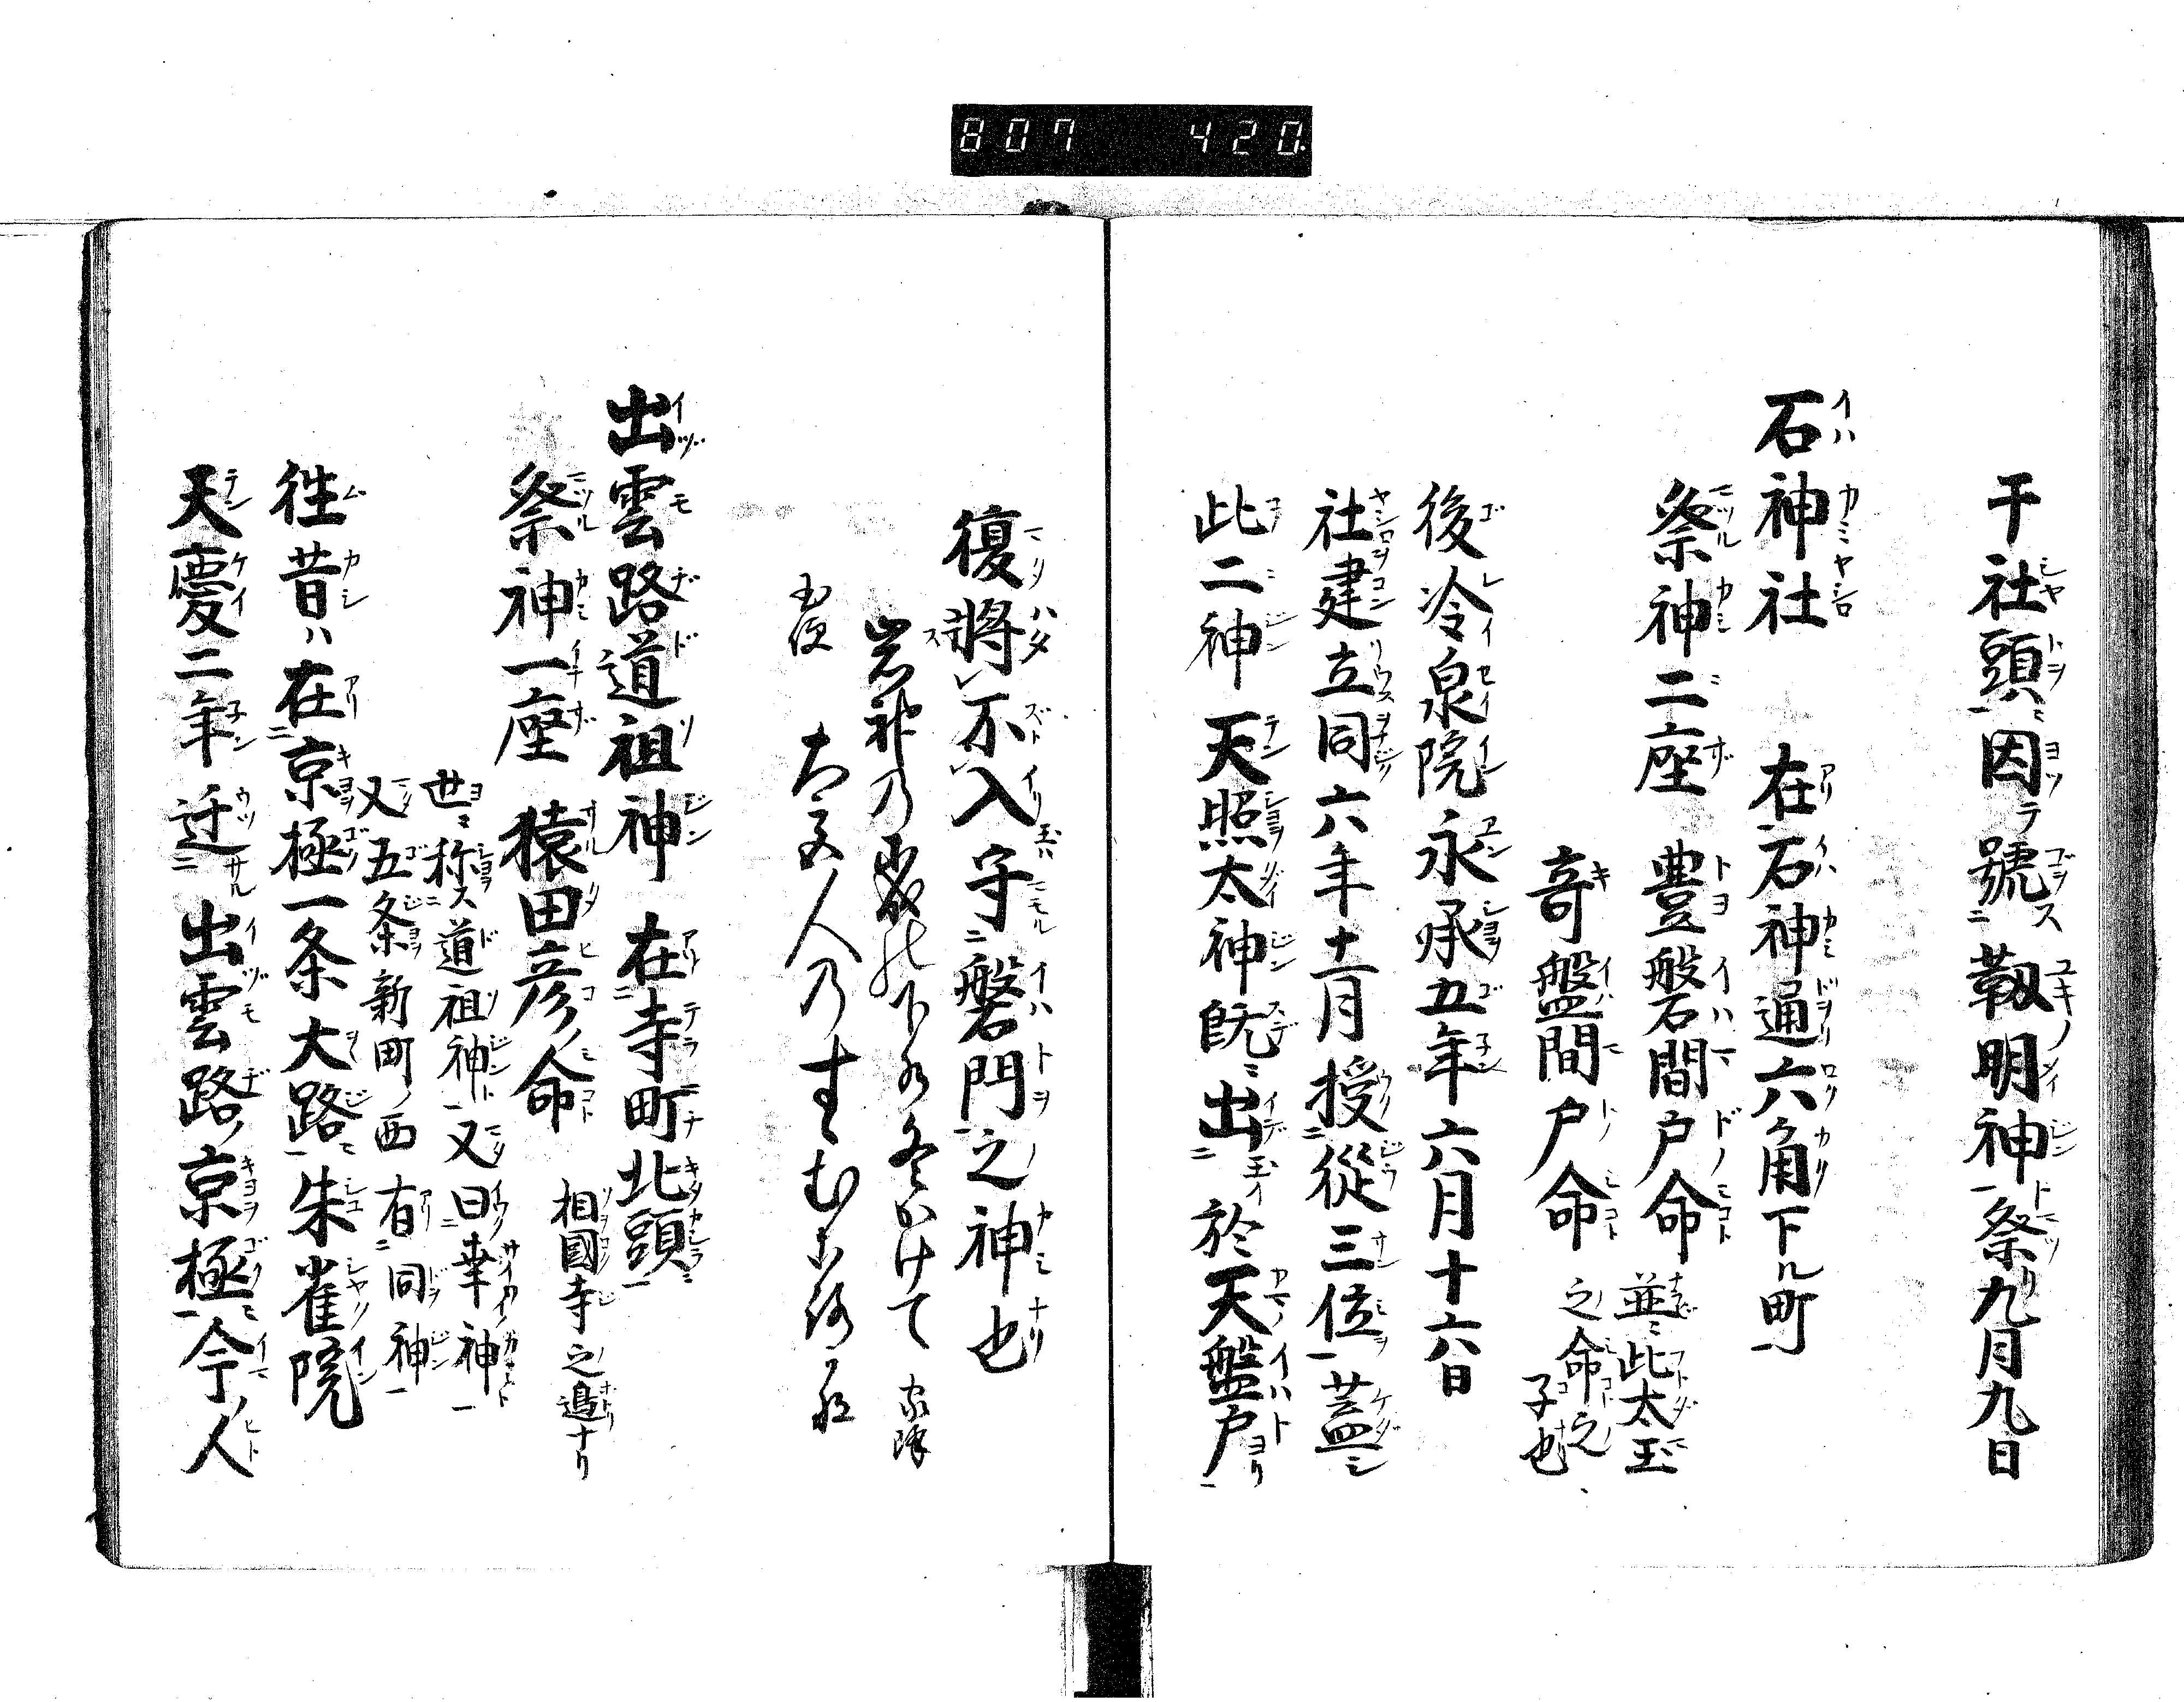 807 420
干社頭因テ號ス靱明神祭九月九日
石神社 在石神通六角下ル町
祭神二座 豊磐間戸命 並此太玉
竒盤間戸命 之命之
子也
後冷泉院永承五年六月十六日
社建立同六年十一月授從三位蓋シ
此二神天照太神既出於天盤戸
復將不入守磐門之神也
岩神乃
人乃すむ
出雲路道祖神 在寺町北頭
祭神一座 猿田彦ノ命 相國寺之邉ナリ
世称ス道祖神又曰幸神
又五条新町ノ西有同神
徃昔ハ在京極一条大路朱雀院
天慶二年迁出雲路ノ京極今ノ人